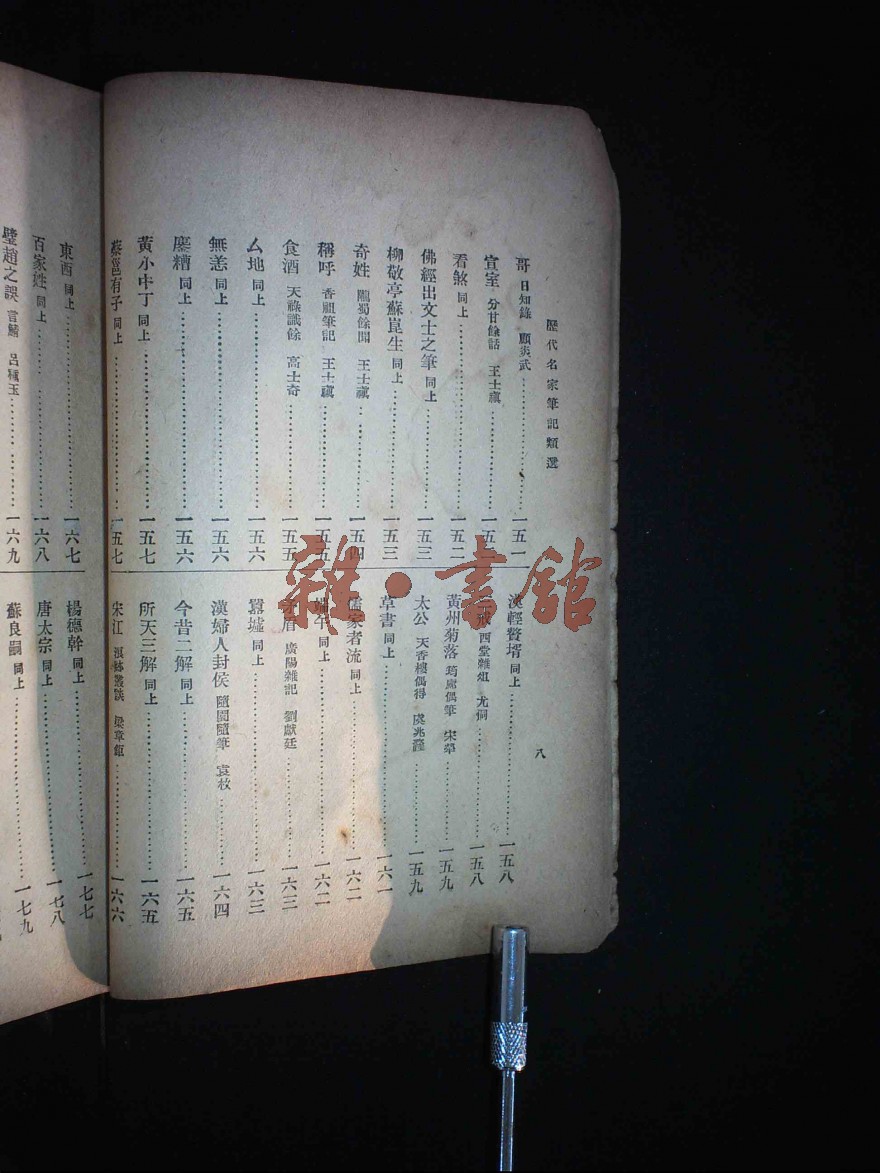 歷代名家筆記類選
八
哥 日知錄 顧炎武 一五一
宣室 分甘餘話 王士禛 一五
看煞 同上 一五二
佛經出文士之筆 同上 一五三
柳敬亭蘇崑生 同上 一五三
奇姓 隴蜀餘聞 王士禛 一五四
稱呼 香祖筆記 王士禛 一五五
食酒 天祿識餘 高士奇 一五五
厶地 同上 一五六
無恙 同上 一五六
鏖糟 同上 一五六
黃小中丁 同上 一五七
蔡邕有子 同上 一五七
漢輕贅壻 同上 一五八
戒 西堂雜俎 尤侗 一五八
黃州菊落 筠廊偶筆 宋犖 一五九
太公 天香樓偶得 虞兆漋 一五九
草書 同上 一六一
儒家者流 同上 一六二
端午 同上 一六二
眉 廣陽雜記 劉獻廷 一六三
囂墟 同上 一六三
漢婦人封侯 隨園隨筆 袁枚 一六四
今昔二解 同上 一六五
所天三解 同上 一六五
宋江 浪跡叢談 梁章鉅 一六六
東西 同上 一六七
百家姓 同上 一六八
璧趙之誤 言鯖 呂種玉 一六九
楊德幹 同上 一七七
唐太宗 同上 一七八
蘇良嗣 同上 一七九
雜·書館